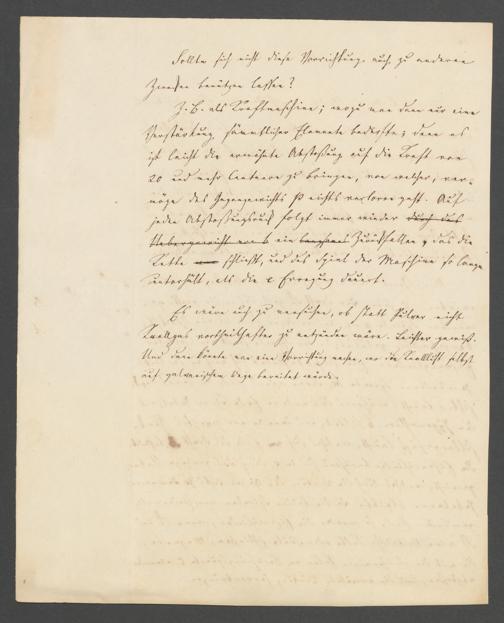 Sollte sich nicht diese Vorrichtung auch zu anderen
Zwecken benützen lassen?
Z. B. als Kraftmaschine; wozu man dann nur eine
Verstärkung sämmtlicher Elemente bedürfte; denn es
ist leicht die erwähnte Abstoßung auf die Kraft von
20 und mehr Centner zu bringen, von welcher, ver-
möge des Gegengewichts nichts verloren geht. Auf
jeden Abstoßungs folgt immer wieder durch das
Uebergewicht ein Zurückfallen das die
Kette schließt, und das Spiel der Maschine so lange
unterhält, als die Erregung dauert.
Es wäre noch zu versuchen, ob statt Pulver nicht
Knallgas vortheilhafter zu entzünden wäre. Leichter gewiß.
Und dann könnte man eine Vorrichtung machen, wo die selbst
auf galvanischem Wege bereitet würde.